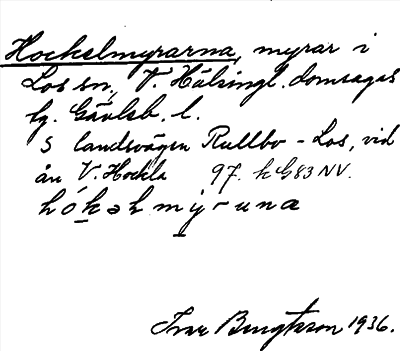 Hockelmyrarna, myrar i
Los sn, V. Hälsingl. domsagas
tg. Gävleb. l.
S landsvägen Rullbo - Los, vid
ån V. Hockla 97. k G83 NV.
Ivar Bengtsson 1936.